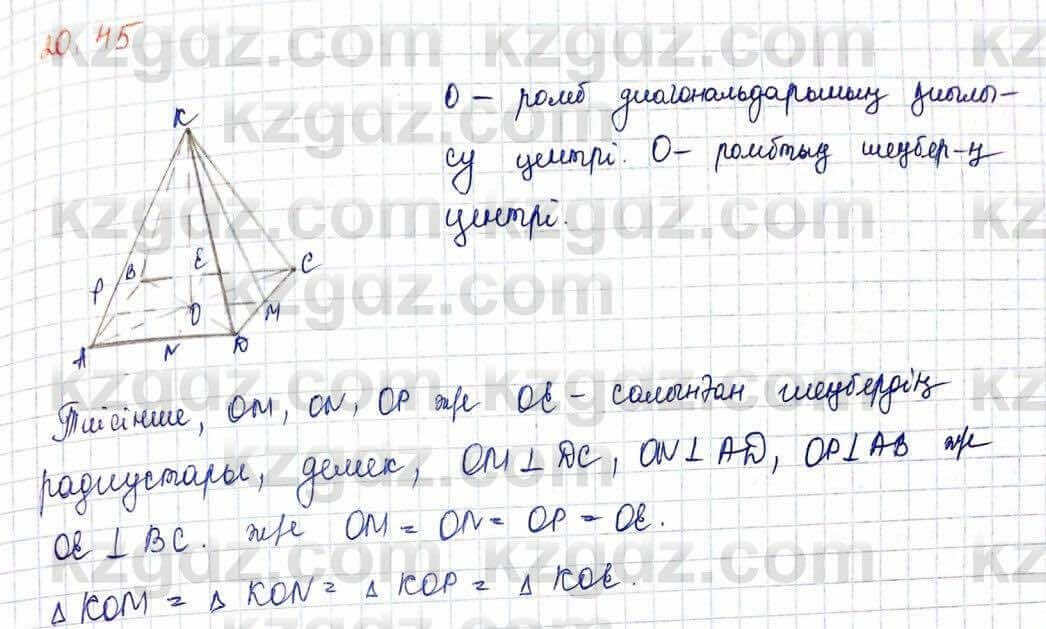 20.45
O – ромб диагональдарының қиылы-
су центрі. O – ромбтың шеңбер-ң
центрі.
K
B E C
P O M
A N D
Тиісінше, OM, ON, OP және OE – салынған шеңбердің
радиустары, демек, OM⊥DC, ON⊥AD, OP⊥AB және
OE⊥BC. және OM = ON = OP = OE.
△KOM = △KON = △KOP = △KOE.
kzgdz.com